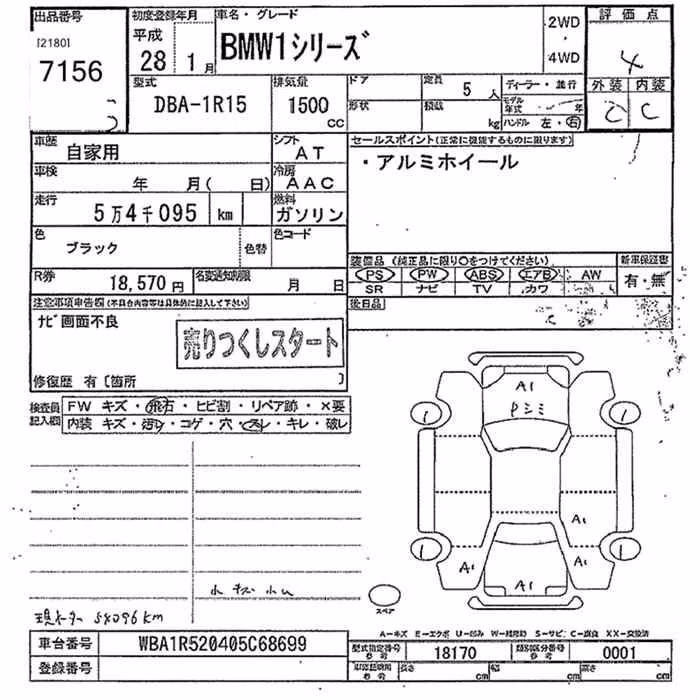 出品番号 初度登録年月 車名・グレード 評価点
[2180] 平成 2WD
7156 28 1月 BMW1シリーズ 4WD 4
型式 排気量 ドア 定員 5人 ディーラー・並行 外装 内装
DBA-1R15 1500 cc 形状 積載 kg モデル年式 年 C C
ハンドル 左・右
車歴 自家用 シフト AT セールスポイント(正常に機能するものに限ります)
車検 年 月( 日) 冷房 AAC ・アルミホイール
走行 5万4千095 km 燃料 ガソリン
色 ブラック 色替 色コード
装備品 (純正品に限り○をつけてください) 新車保証書
R券 18,570円 名変通知期限 月 日 PS PW ABS エアB AW 有・無
SR ナビ TV カワ
注意事項申告欄(不具合内容等は具体的に記入して下さい) 後日品
ナビ画面不良
売りつくしスタート
修復歴 有〔箇所 〕
検査員記入欄 FW キズ・飛石・ヒビ割・リペア跡・×要
内装 キズ・汚レ・コゲ・穴・スレ・キレ・破レ
A1
Pシミ
1 1
A1
1 1
A1 A1
A1
スペア
小キズ小凹
現メーター 54096km
A-キズ E-エクボ U-凹み W-補修跡 S-サビ C-腐食 XX-交換済
車台番号 WBA1R520405C68699 型式指定番号 参考 18170 類別区分番号 参考 0001
登録番号 参考 長さ cm 幅 cm 高さ cm